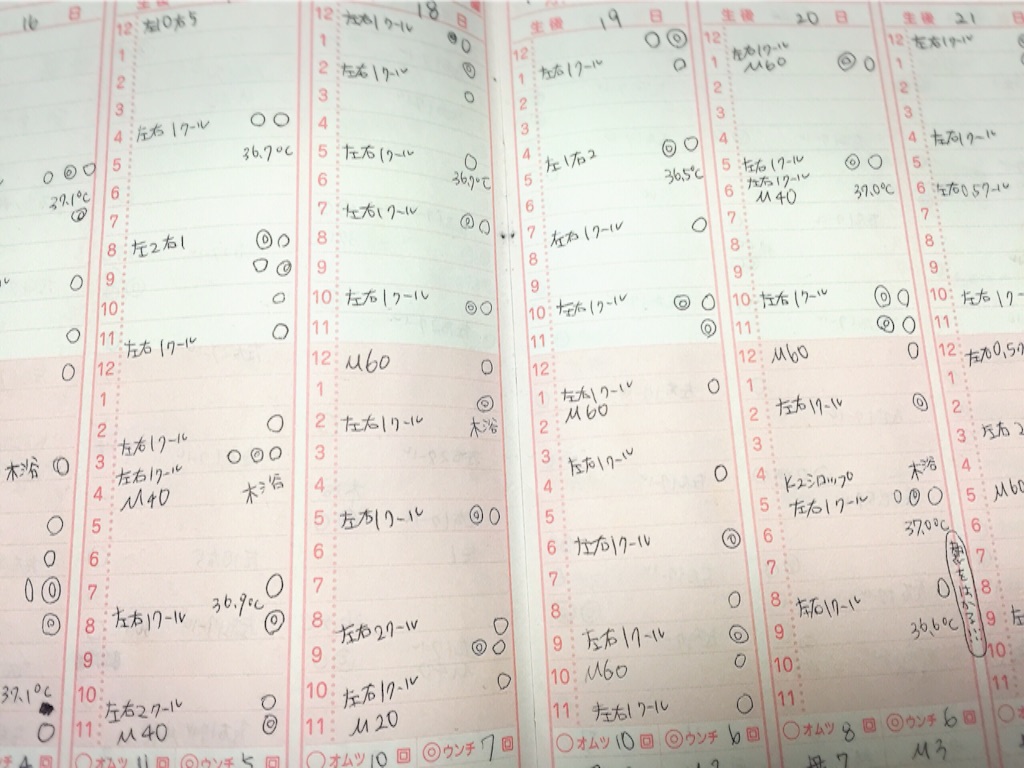 16 日
37.1℃
木浴
37.1℃
4 回
12 左10右5
1
2
3
4 左右1クール ○○
5 36.7℃
6
7
8 左2右1 ◎○
9 ○◎
10 ○
11 左右1クール ○
12
1
2 左右1クール ○
3 左右1クール ○◎○
4 M40 木浴
5
6
7 36.9℃ ○
8 左右1クール ◎
9
10 左右2クール ○
11 M40 ◎
○オムツ 11 回 ◎ウンチ 5 回
18 日
12 左右1クール
1 ◎○
2 左右1クール ◎
3 ○
4
5 左右1クール ○
6 36.9℃
7 左右1クール ◎○
8
9
10 左右1クール ◎○
11
12 M60 ○
1 ◎
2 左右1クール 木浴
3
4
5 左右1クール ◎○
6
7
8 左右2クール ○
9 ◎○
10 左右1クール ○
11 M20
○オムツ 10 回 ◎ウンチ 7 回
生後 19 日
12 ○◎
1 左右1クール ○
2
3
4 左1右2 ◎○
5 36.5℃
6
7 左右1クール ○
8
9
10 左右1クール ◎○
11 ◎
12
1 左右1クール ○
2 M60
3 左右1クール
4 ○
5
6 左右1クール ◎
7
8 ○
9 左右1クール ◎
10 M60 ○
11 左右1クール ○
○オムツ 10 回 ◎ウンチ 6 回
生後 20 日
12 左右1クール
1 M60 ◎○
2
3
4
5 左右1クール ◎○
左右1クール
6 M40 37.0℃
7
8
9
10 左右1クール ◎○
11 ◎○
12 M60 ○
1
2 左右1クール ◎
3
4 K2シロップ 木浴
5 左右1クール ○◎○
6 37.0℃
7
8 左右1クール ○
9 36.6℃
10
11
○オムツ 8 回 ◎ウンチ 6 回
母7 M3
生後 21
12 左右1クール
1
2
3
4 左右1クール
5
6 左右0.5クール
7
8
9
10 左右1クー
11
12 左右0.5ク
1
2
3 左右2
4
5 M60
6
7
8
9
10
11